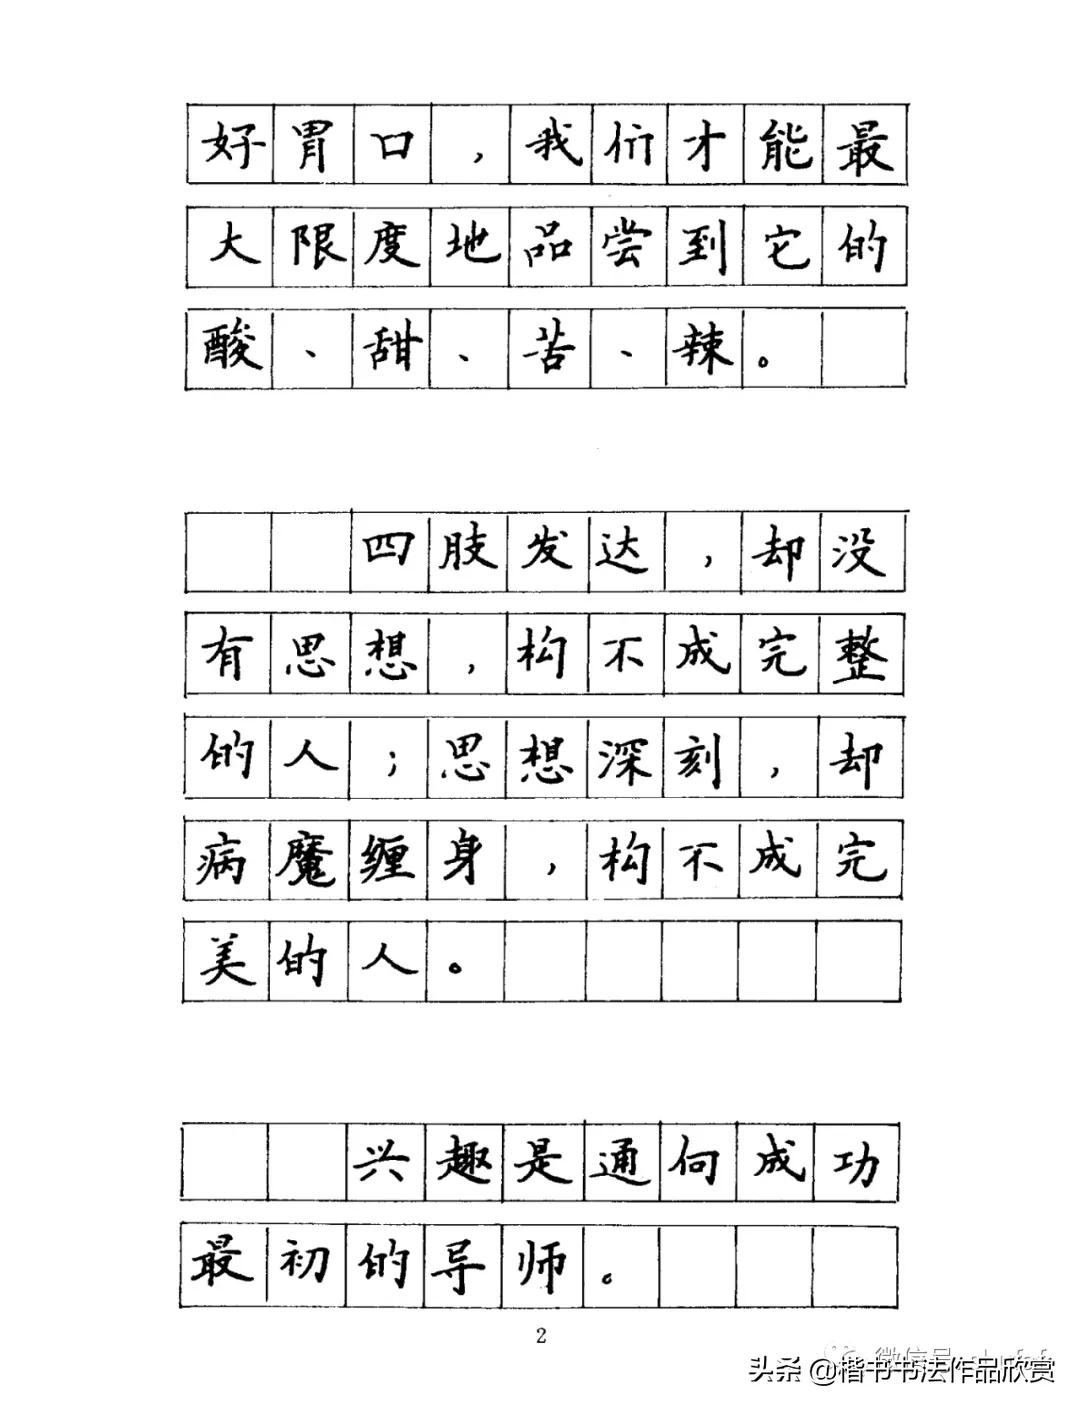 好胃口，我们才能最
大限度地品尝到它的
酸、甜、苦、辣。
四肢发达，却没
有思想，构不成完整
的人；思想深刻，却
病魔缠身，构不成完
美的人。
兴趣是通向成功
最初的导师。
2
头条 @楷书书法作品欣赏